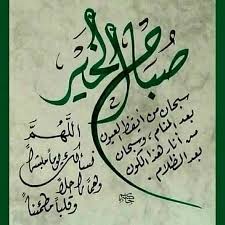 صباح الخير
سبحان من أيقظ العيون
بعد المنام، وسبحان
من أنار هذا الكون
بعد الظلام.
اللهم
نسألك يوما
وهما
وقلبا مطمئنا